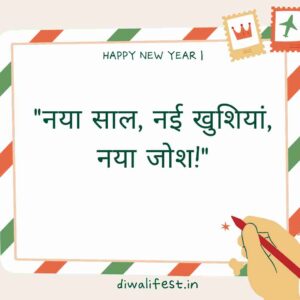 HAPPY NEW YEAR |
"नया साल, नई खुशियां,
नया जोश!"
diwalifest.in